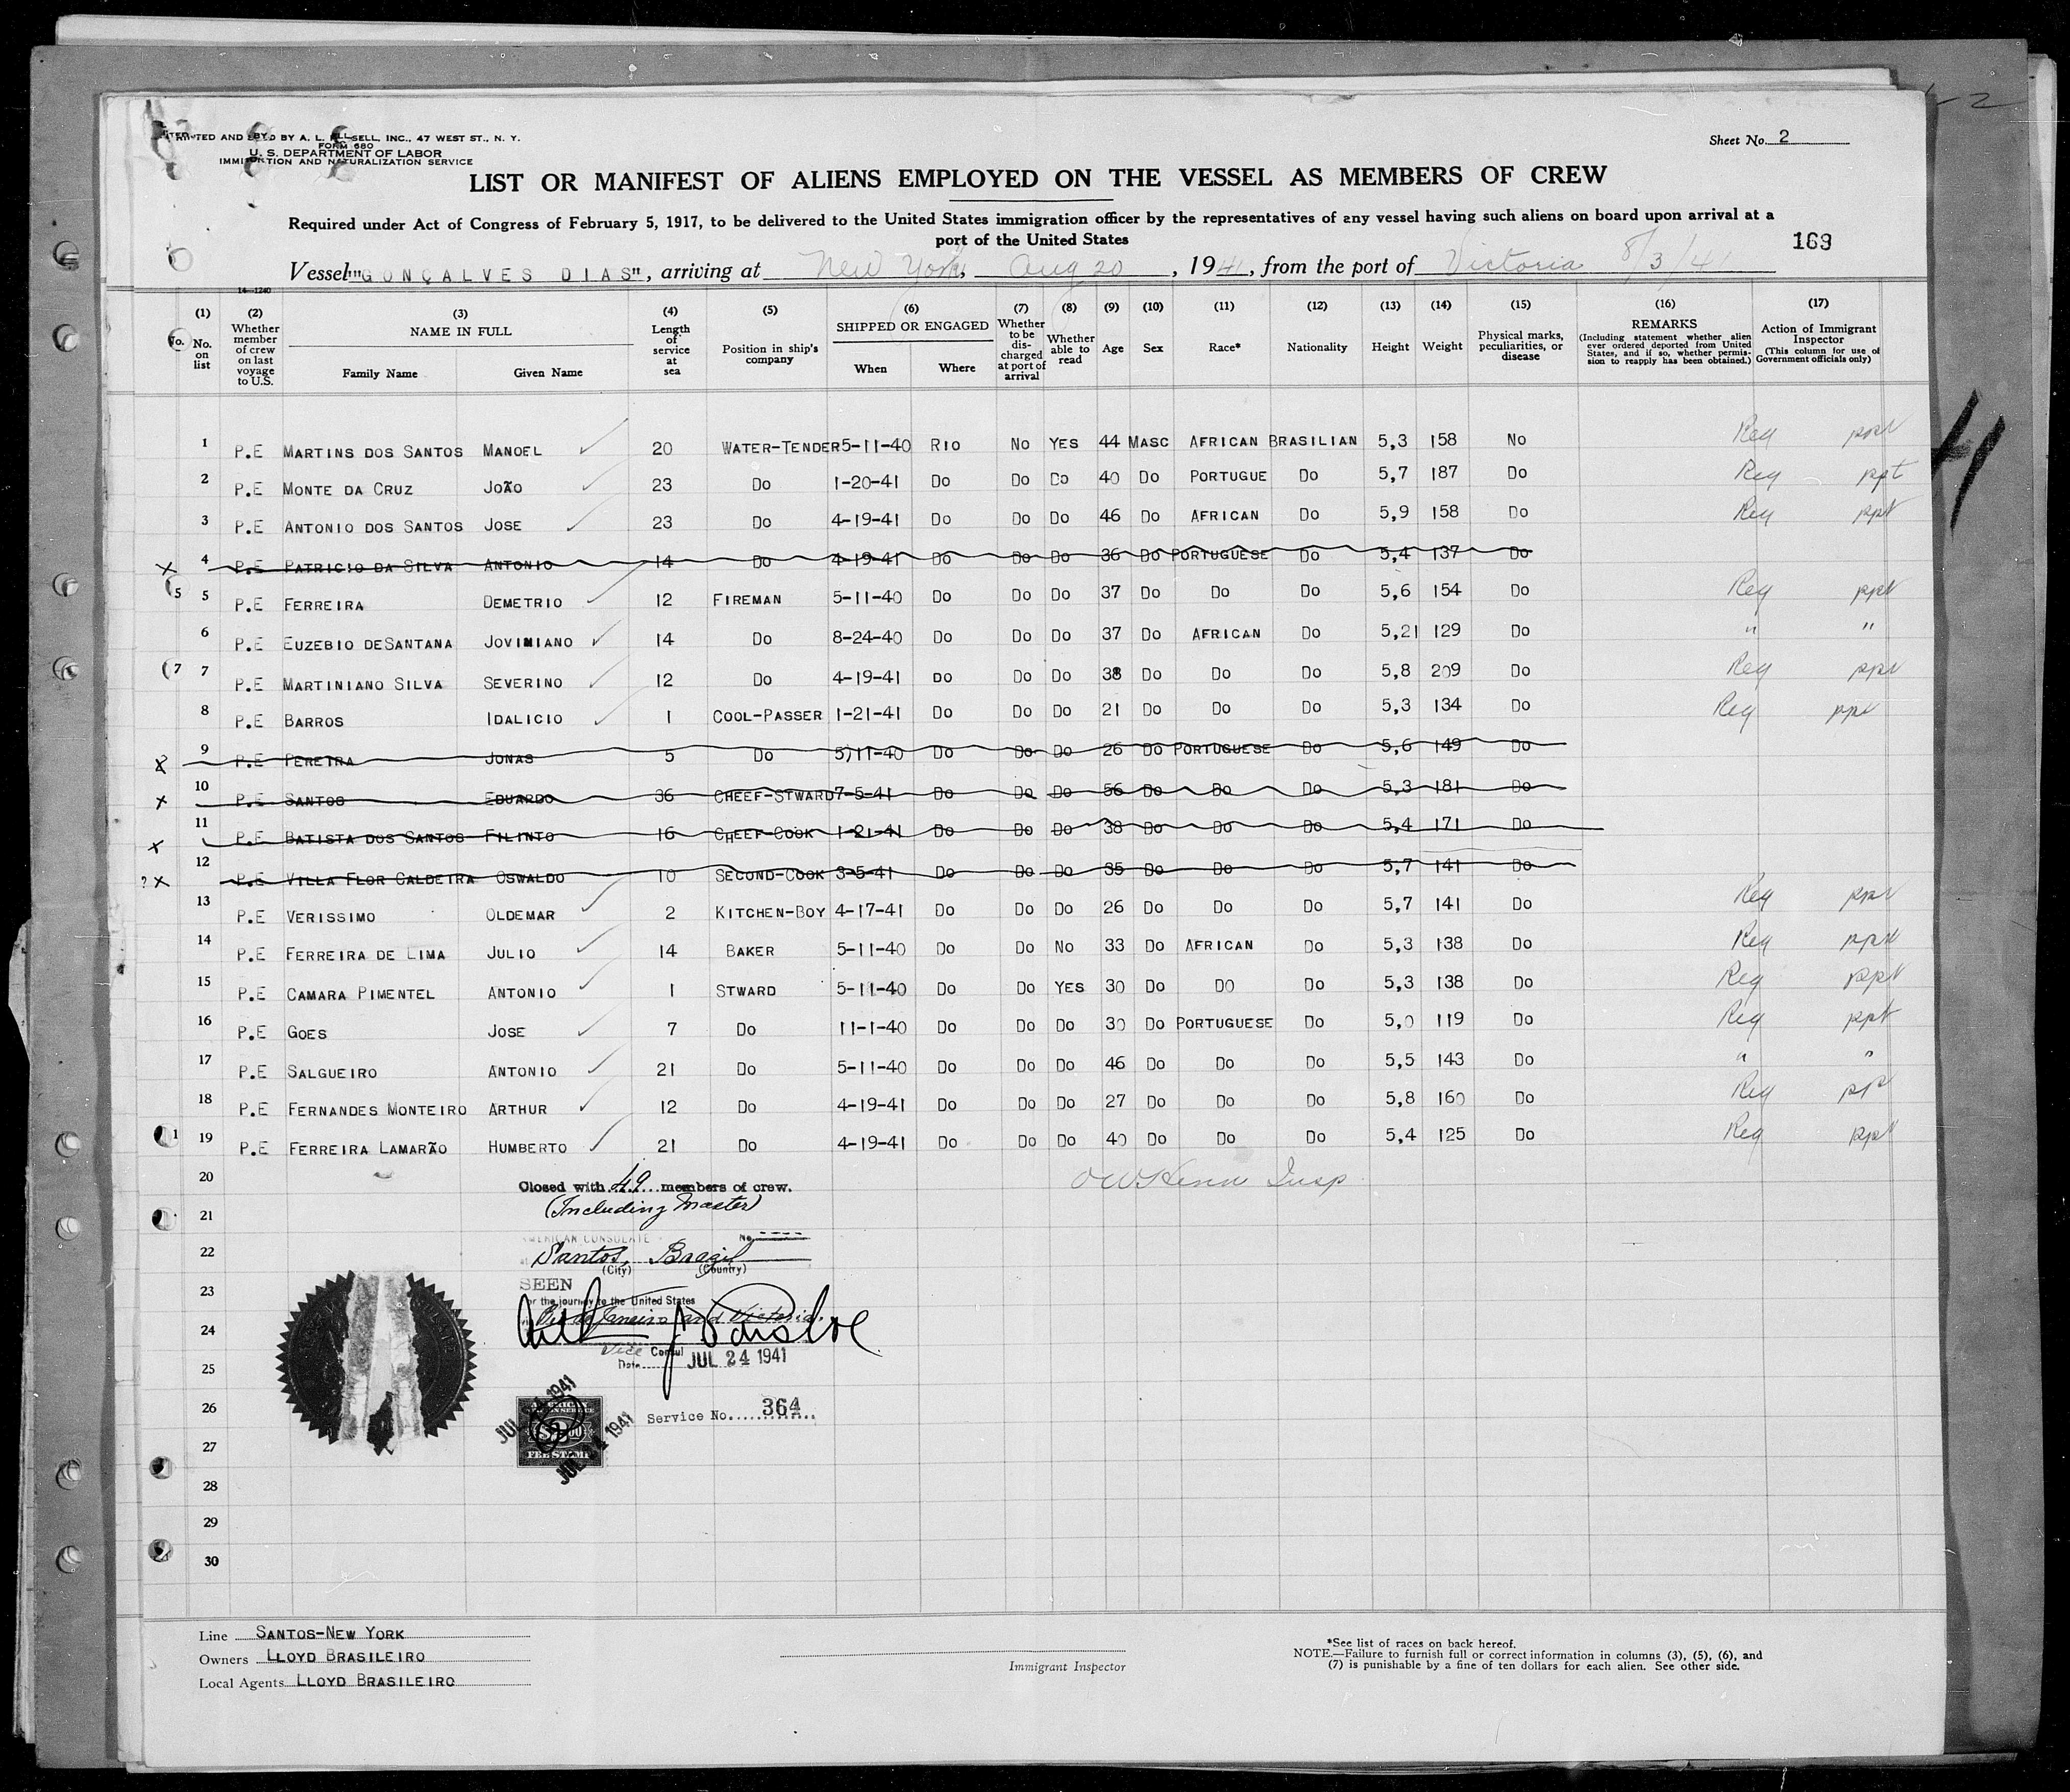 PRINTED AND SOLD BY A. L. RUSSELL, INC., 47 WEST ST., N. Y.
FORM 680
U. S. DEPARTMENT OF LABOR
IMMIGRATION AND NATURALIZATION SERVICE
Sheet No. 2
LIST OR MANIFEST OF ALIENS EMPLOYED ON THE VESSEL AS MEMBERS OF CREW
Required under Act of Congress of February 5, 1917, to be delivered to the United States immigration officer by the representatives of any vessel having such aliens on board upon arrival at a
port of the United States
169
Vessel "GONÇALVES DIAS", arriving at New York, Aug 20, 1941, from the port of Victoria 8/3/41
14—1240
(1) No. on list (2) Whether member of crew on last voyage to U.S. (3) NAME IN FULL Family Name Given Name (4) Length of service at sea (5) Position in ship's company (6) SHIPPED OR ENGAGED When Where (7) Whether to be discharged at port of arrival (8) Whether able to read (9) Age (10) Sex (11) Race* (12) Nationality (13) Height (14) Weight (15) Physical marks, peculiarities, or disease (16) REMARKS (Including statement whether alien ever ordered deported from United States, and if so, whether permission to reapply has been obtained.) (17) Action of Immigrant Inspector (This column for use of Government officials only)
1 P.E MARTINS DOS SANTOS MANOEL 20 WATER-TENDER 5-11-40 RIO NO YES 44 MASC AFRICAN BRASILIAN 5,3 158 NO Reg ppt
2 P.E MONTE DA CRUZ JOÃO 23 DO 1-20-41 DO DO DO 40 DO PORTUGUE DO 5,7 187 DO Reg ppt
3 P.E ANTONIO DOS SANTOS JOSE 23 DO 4-19-41 DO DO DO 46 DO AFRICAN DO 5,9 158 DO Reg ppt
X 4 P.E PATRICIO DA SILVA ANTONIO 14 DO 4-19-41 DO DO DO 36 DO PORTUGUESE DO 5,4 137 DO
5 5 P.E FERREIRA DEMETRIO 12 FIREMAN 5-11-40 DO DO DO 37 DO DO DO 5,6 154 DO Reg ppt
6 P.E EUZEBIO DESANTANA JOVINIANO 14 DO 8-24-40 DO DO DO 37 DO AFRICAN DO 5,21 129 DO " "
7 7 P.E MARTINIANO SILVA SEVERINO 12 DO 4-19-41 DO DO DO 38 DO DO DO 5,8 209 DO Reg ppt
8 P.E BARROS IDALICIO 1 COOL-PASSER 1-21-41 DO DO DO 21 DO DO DO 5,3 134 DO Reg ppt
X 9 P.E PEREIRA JONAS 5 DO 5)11-40 DO DO DO 26 DO PORTUGUESE DO 5,6 149 DO
X 10 P.E SANTOS EDUARDO 36 CHEEF-STWARD 7-5-41 DO DO DO 56 DO DO DO 5,3 181 DO
X 11 P.E BATISTA DOS SANTOS FILINTO 16 CHEEF-COOK 1-21-41 DO DO DO 38 DO DO DO 5,4 171 DO
? X 12 P.E VILLA FLOR CALDEIRA OSWALDO 10 SECOND-COOK 3-5-41 DO DO DO 35 DO DO DO 5,7 141 DO
13 P.E VERISSIMO OLDEMAR 2 KITCHEN-BOY 4-17-41 DO DO DO 26 DO DO DO 5,7 141 DO Reg ppt
14 P.E FERREIRA DE LIMA JULIO 14 BAKER 5-11-40 DO DO NO 33 DO AFRICAN DO 5,3 138 DO Reg ppt
15 P.E CAMARA PIMENTEL ANTONIO 1 STWARD 5-11-40 DO DO YES 30 DO DO DO 5,3 138 DO Reg ppt
16 P.E GOES JOSE 7 DO 11-1-40 DO DO DO 30 DO PORTUGUESE DO 5,0 119 DO Reg ppt
17 P.E SALGUEIRO ANTONIO 21 DO 5-11-40 DO DO DO 46 DO DO DO 5,5 143 DO " "
18 P.E FERNANDES MONTEIRO ARTHUR 12 DO 4-19-41 DO DO DO 27 DO DO DO 5,8 160 DO Reg pp
1 19 P.E FERREIRA LAMARÃO HUMBERTO 21 DO 4-19-41 DO DO DO 40 DO DO DO 5,4 125 DO Reg ppt
20
Closed with 49 members of crew.
(Including Master)
21
AMERICAN CONSULATE No.
22
Santos, Brazil
(City) (Country)
SEEN
23
For the journey to the United States
Rio de Janeiro and Victoria.
24
Vice Consul
Date JUL 24 1941
25
26
Service No. 364
JUL 24 1941
FEE STAMP
JUL 24 1941
27
28
29
30
Line SANTOS-NEW YORK
Owners LLOYD BRASILEIRO
Local Agents LLOYD BRASILEIRO
Immigrant Inspector
*See list of races on back hereof.
NOTE.—Failure to furnish full or correct information in columns (3), (5), (6), and
(7) is punishable by a fine of ten dollars for each alien. See other side.